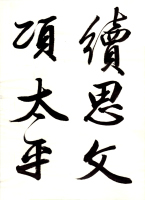 續思文
項太平